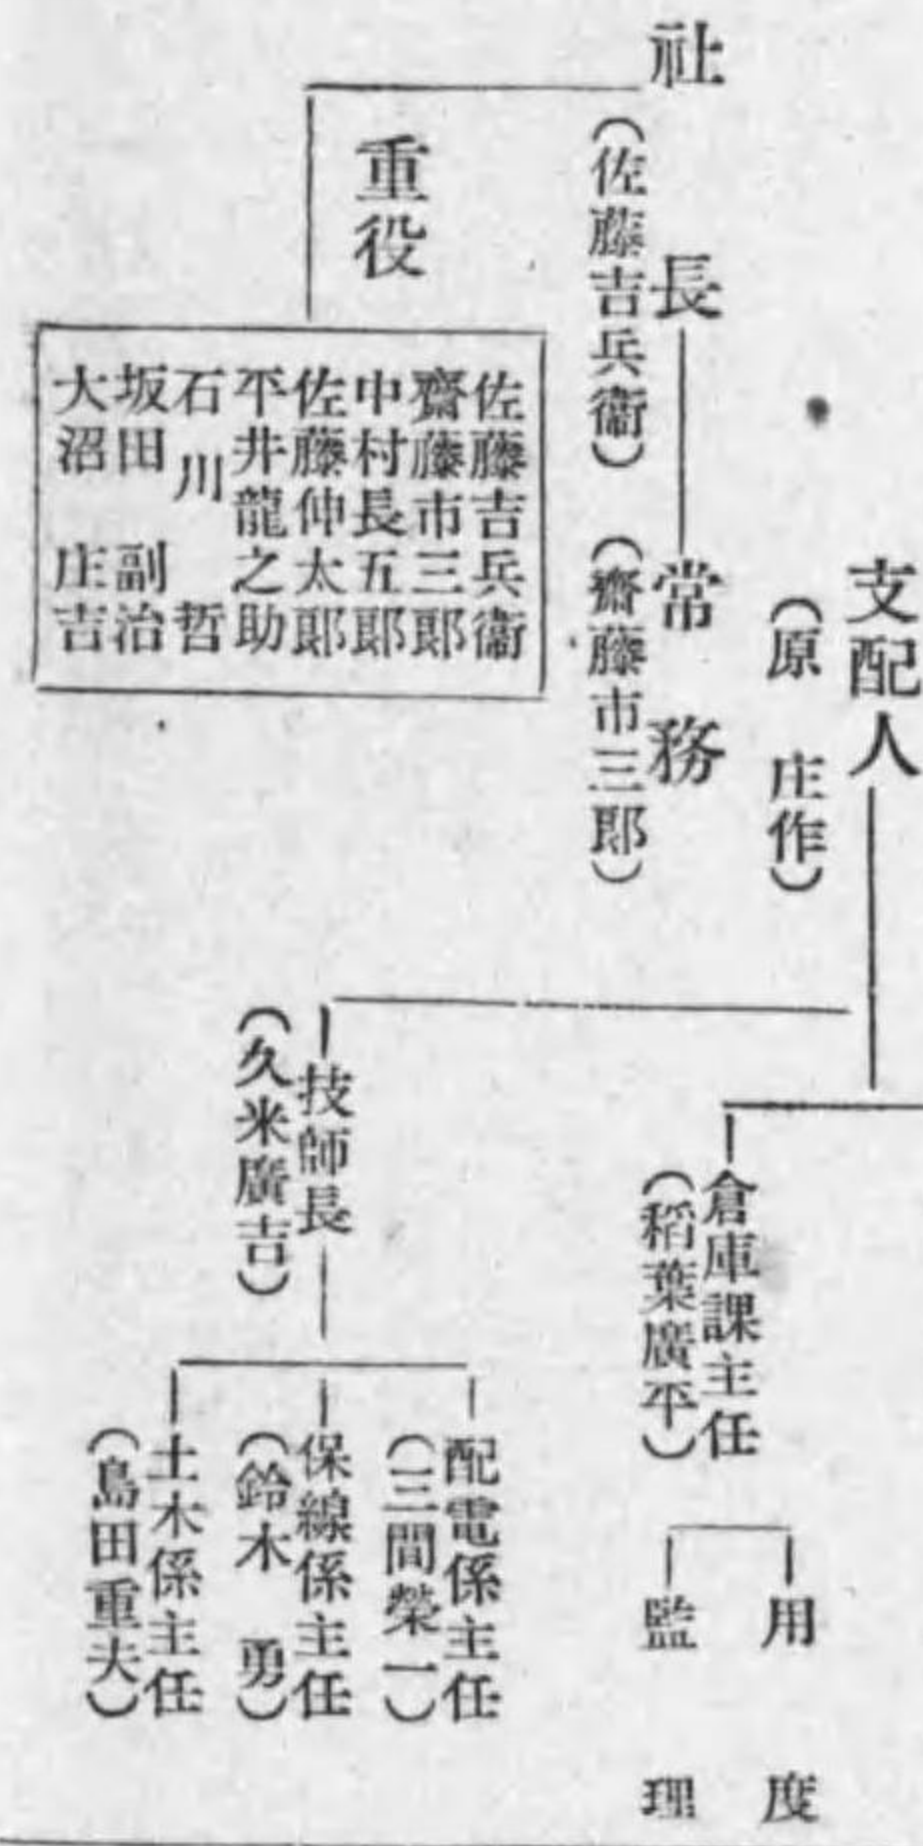 支配人
(原 庄作)
社長
常務
(佐藤吉兵衞)
(齋藤市三郎)
重役
佐藤吉兵衞
齋藤市三郎
中村長五郎
佐藤仲太郎
平井龍之助
石川 哲
坂田 副治
大沼 庄吉
倉庫課主任
(稻葉廣平)
用度
監理
技師長
(久米廣吉)
配電係主任
(三間榮一)
保線係主任
(鈴木 勇)
土木係主任
(島田重夫)